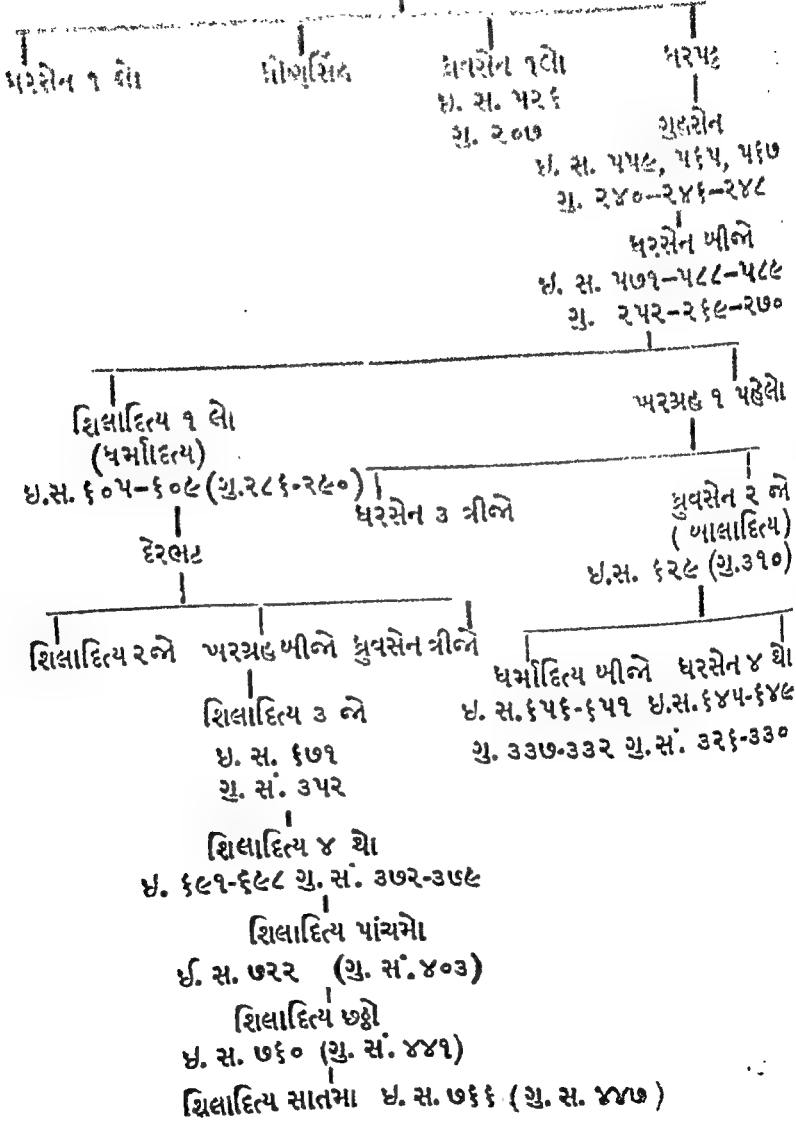 ધરસેન ૧ લો દ્રોણસિંહ ધ્રુવસેન ૧લો ધરપટ્ટ
ઇ. સ. ૫૨૬
ગુ. ૨૦૭
ગુહસેન
ઇ. સ. ૫૫૯, ૫૬૫, ૫૬૭
ગુ. ૨૪૦-૨૪૬-૨૪૮
ધરસેન બીજો
ઇ. સ. ૫૭૧-૫૮૮-૫૮૯
ગુ. ૨૫૨-૨૬૯-૨૭૦
શિલાદિત્ય ૧ લો
(ધર્માદિત્ય)
ઇ.સ. ૬૦૫-૬૦૯ (ગુ.૨૮૬-૨૯૦)
ખરગ્રહ ૧ પહેલો
દેરભટ
ધરસેન ૩ ત્રીજો
ધ્રુવસેન ૨ જો
(બાલાદિત્ય)
ઇ.સ. ૬૨૯ (ગુ.૩૧૦)
શિલાદિત્ય ૨જો ખરગ્રહ બીજો ધ્રુવસેન ત્રીજો
ધર્માદિત્ય બીજો ધરસેન ૪ થો
ઇ. સ.૬૫૬-૬૫૧ ઇ.સ.૬૪૫-૬૪૯
ગુ. ૩૩૭-૩૩૨ ગુ.સં. ૩૨૬-૩૩૦
શિલાદિત્ય ૩ જો
ઇ. સ. ૬૭૧
ગુ. સં. ૩૫૨
શિલાદિત્ય ૪ થો
ઇ. ૬૯૧-૬૯૮ ગુ. સં. ૩૭૨-૩૭૯
શિલાદિત્ય પાંચમો
ઈ. સ. ૭૨૨ (ગુ. સં.૪૦૩)
શિલાદિત્ય છઠ્ઠો
ઇ. સ. ૭૬૦ (ગુ. સં. ૪૪૧)
શિલાદિત્ય સાતમા ઇ. સ. ૭૬૬ ( ગુ. સ. ૪૪૭ )